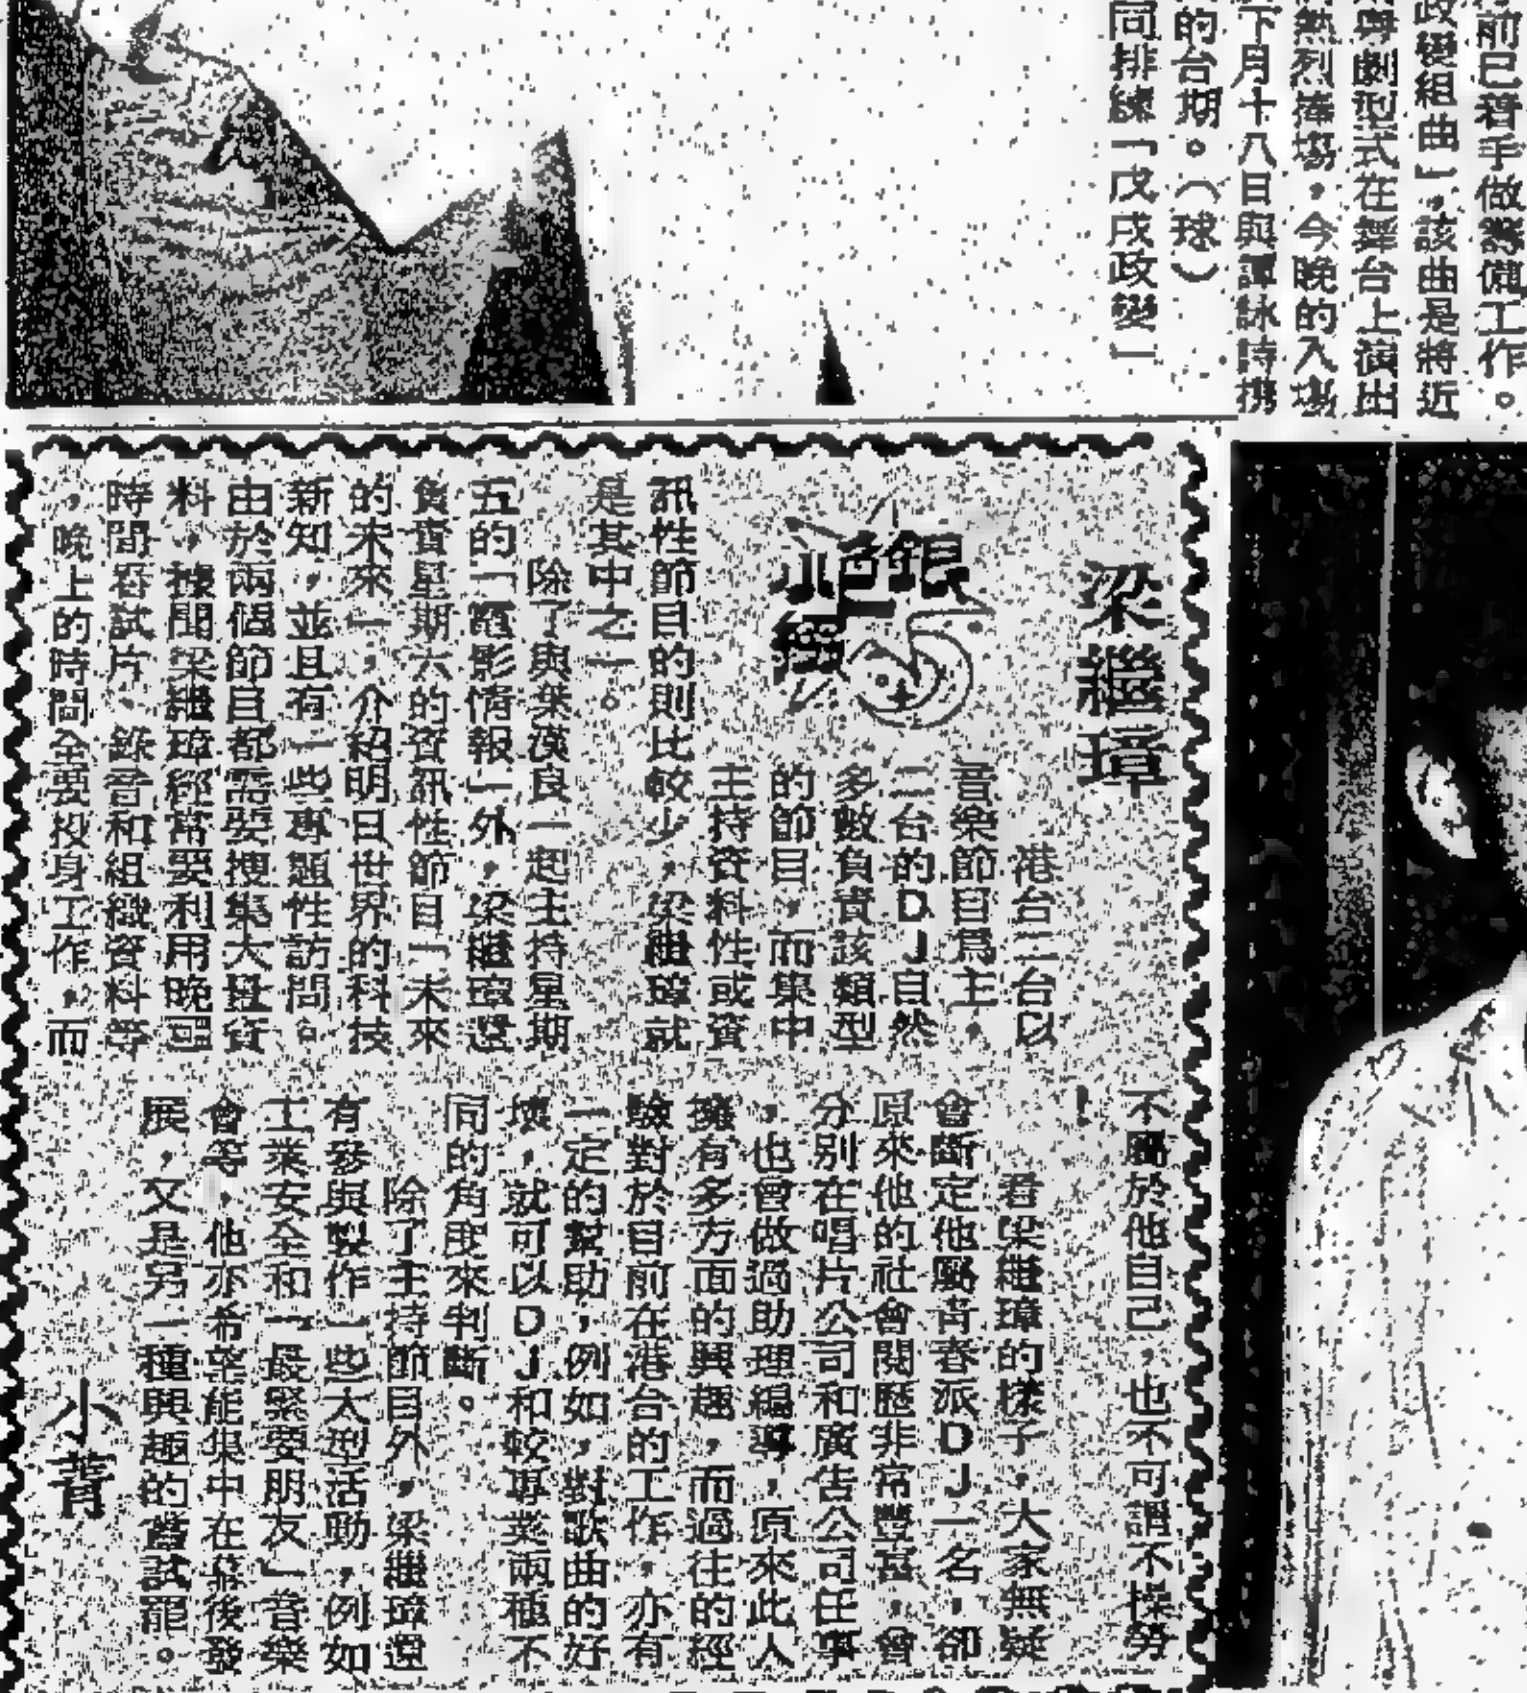 前已着手做籌備工作。
政變組曲」，該曲是將近
與劇型式在舞台上演出
熱烈捧場，今晚的入場
下月十八日與譚詠詩携
的台期。（球）
同排練「戊戌政變」
梁繼璋
銀色小網
港台二台以
音樂節目爲主，
二台的DJ自然
多數負責該類型
的節目，而集中
主持資料性或資
訊性節目的則比較少，梁繼璋就
是其中之一。
除了與葉漢良一起主持星期
五的「電影情報」外，梁繼璋還
負責星期六的資訊性節目「未來
的未來」，介紹明日世界的科技
新知，並且有一些專題性訪問。
由於兩個節目都需要搜集大量資
料，據聞梁繼璋經常要利用晚上
時間看試片、錄音和組織資料等
，晚上的時間全要投身工作，而
不屬於他自己，也不可謂不操勞
！
看梁繼璋的樣子，大家無疑
會斷定他屬青春派DJ一名，卻
原來他的社會閱歷非常豐富，曾
分別在唱片公司和廣告公司任事
，也曾做過助理編導，原來此人
擁有多方面的興趣，而過往的經
驗對於目前在港台的工作，亦有
一定的幫助，例如，對歌曲的好
壞，就可以DJ和較專業兩種不
同的角度來判斷。
除了主持節目外，梁繼璋還
有參與製作一些大型活動，例如
工業安全和「最緊要朋友」音樂
會等，他亦希望能集中在幕後發
展，又是另一種興趣的嘗試罷。
小菁